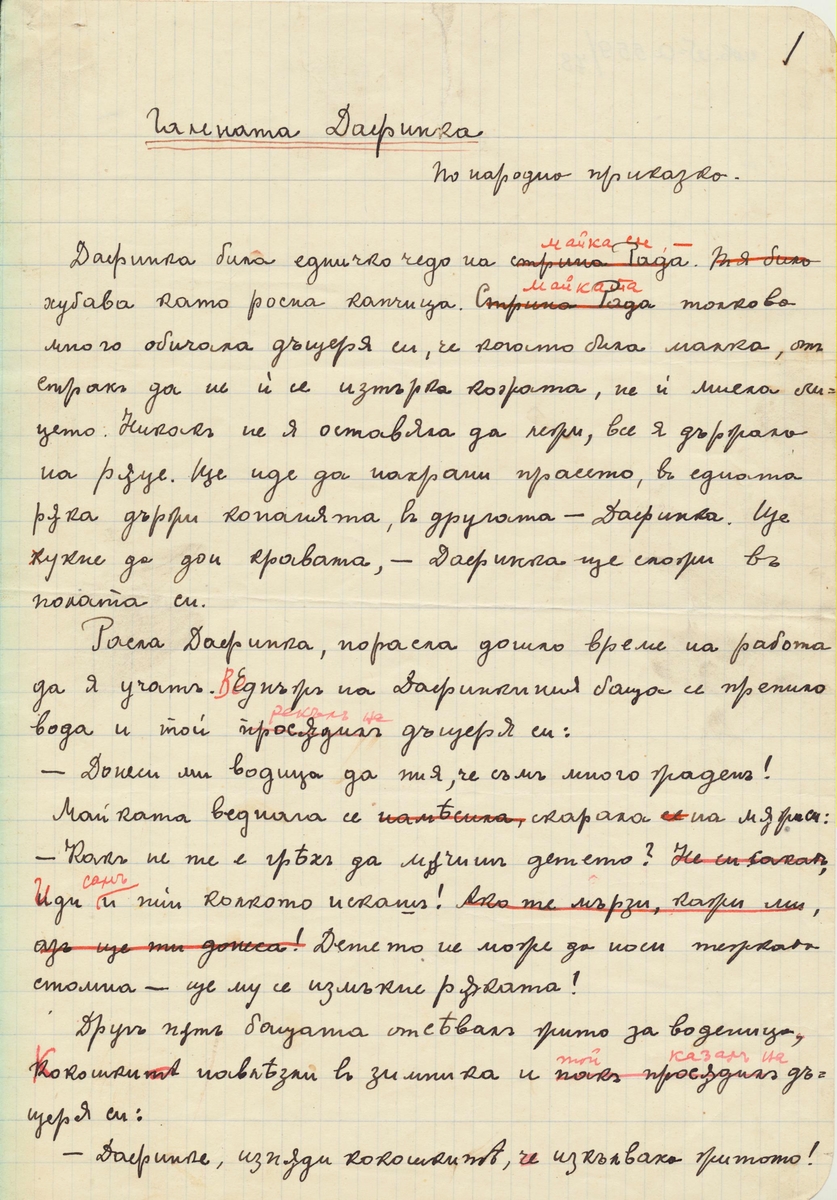 1
Галената Дафинка
По народна приказка.
майка си
Дафинка била едничко чедо на стрина Рада. Тя била
майката
хубава като росна капчица. Стрина Рада толкова
много обичала дъщеря си, че когато била малка, отъ
страхъ да не ѝ се изтърка кожата, не ѝ миела ли=
цето. Никакъ не я оставяла да лежи, все я държала
на рѫце. Ще иде да нахрани прасето, въ едната
рѫка държи копанята, въ другата — Дафинка. Ще
клекне да дои кравата, — Дафинка ще сложи въ
полата си.
Расла Дафинка, порасла дошло време на работа
да я учатъ. Веднъжъ на Дафинкиния баща се препило
рекълъ на
вода и той просѫдилъ дъщеря си:
— Донеси ми водица да пия, че съмъ много жаденъ!
Майката веднага се намѣсила, скарала се на мѫжа си:
— Какъ не те е грѣхъ да мѫчишъ детето? Не си сакатъ,
самъ
Иди и пий колкото искашъ! Ако те мързи, кажи ми,
азъ ще ти донеса! Детето не може да носи тежката
стомна — ще му се измъкне рѫката!
Другъ пѫть бащата отсѣвалъ жито за воденица,
той казалъ на
Кокошкитѣ навлѣзли въ зимника и пакъ просѫдилъ дъ=
щеря си:
— Дафинке, изпѫди кокошкитѣ, че изкълваха житото!